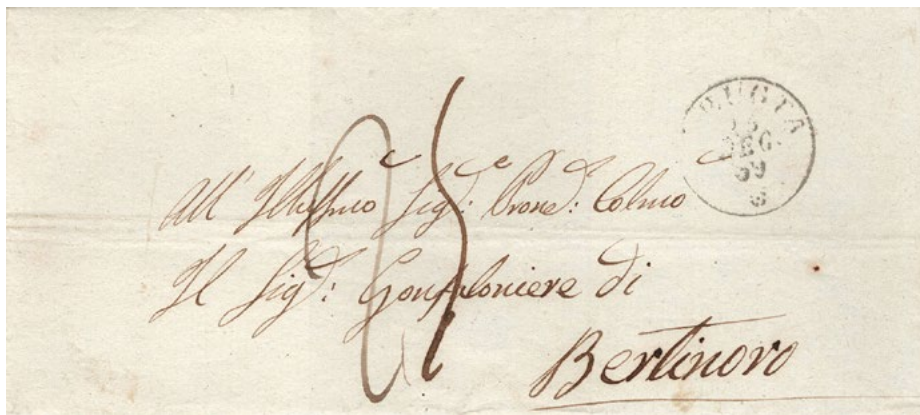 RUGIA
DEC
59
All' Illustrmo Sigr: Prone: Colmo
Il Sigr: Gonfaloniere di
Bertinoro